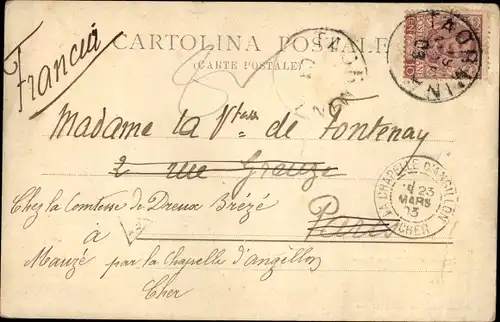 Francia
CARTOLINA POSTALE
(CARTE POSTALE)
TAORMINA
Madame la Vtesse de Fontenay
2 rue Greuze
Paris
Chez la Comtesse de Dreux Brézé
à
Mauzé par la Chapelle d'angillon
Cher
LA CHAPELLE D'ANGILLON
23
MARS
03
CHER